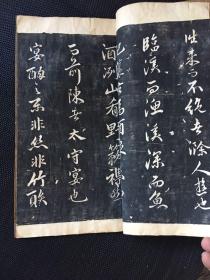 往來而不絕者滁人遊也
臨溪而漁溪深而魚
酒洌山肴野蔌雜然
而前陳者太守宴也
宴酣之樂非絲非竹